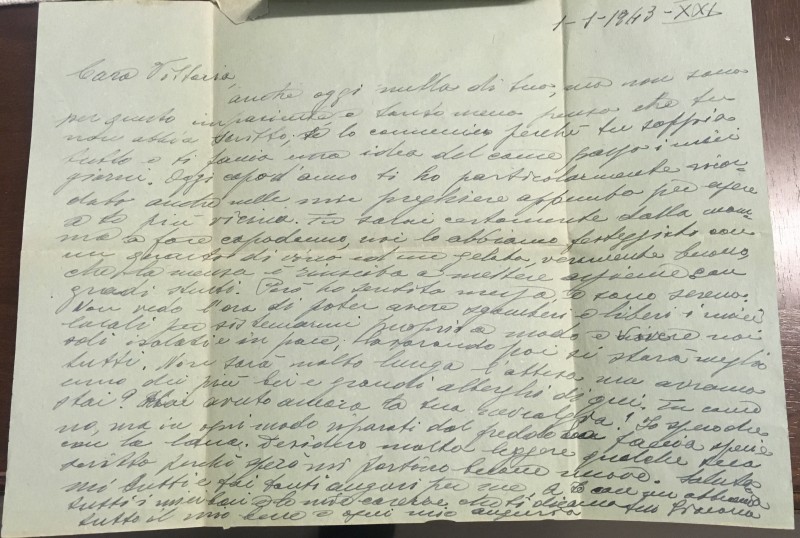 1-1-1943-XXI
Cara Vittoria,
anche oggi nulla di tuo, ma non sono
per questo impaziente e tanto meno penso che tu
non abbia scritto, te lo comunico perché tu sappia
tutto e ti faccia una idea del come passo i miei
giorni. Oggi capod'anno ti ho particolarmente ricor-
dato anche nelle mie preghiere appunto per essere
a te più vicino. Tu sarai certamente dalla mam-
ma a fare capodanno, noi lo abbiamo festeggiato con
un quarto di vino ed un gelato, veramente buono
che la mensa è riuscita a mettere assieme con
grandi stenti. Però ho sentito messa e sono sereno.
Non vedo l'ora di poter avere sgomberi e liberi i miei
locali per sistemarmi proprio a modo e vivere noi
soli isolati e in pace, lavorando poi si starà meglio
tutti. Non sarà molto lunga l'attesa ma avremo
uno dei più bei e grandi alberghi di qui. Tu come
stai? Hai avuto ancora la tua nevralgia? Io spero che
no, ma in ogni modo riparati dal freddo faccia specie
con la lana. Desidero molto leggere qualche tuo
scritto perché spero mi portino belle nuove. Saluta
mi tutti e fai tanti auguri per me a te con un abbraccio
tutti i miei baci e le mie carezze che ti dicano
tutto il mio bene e ogni mio augurio tuo